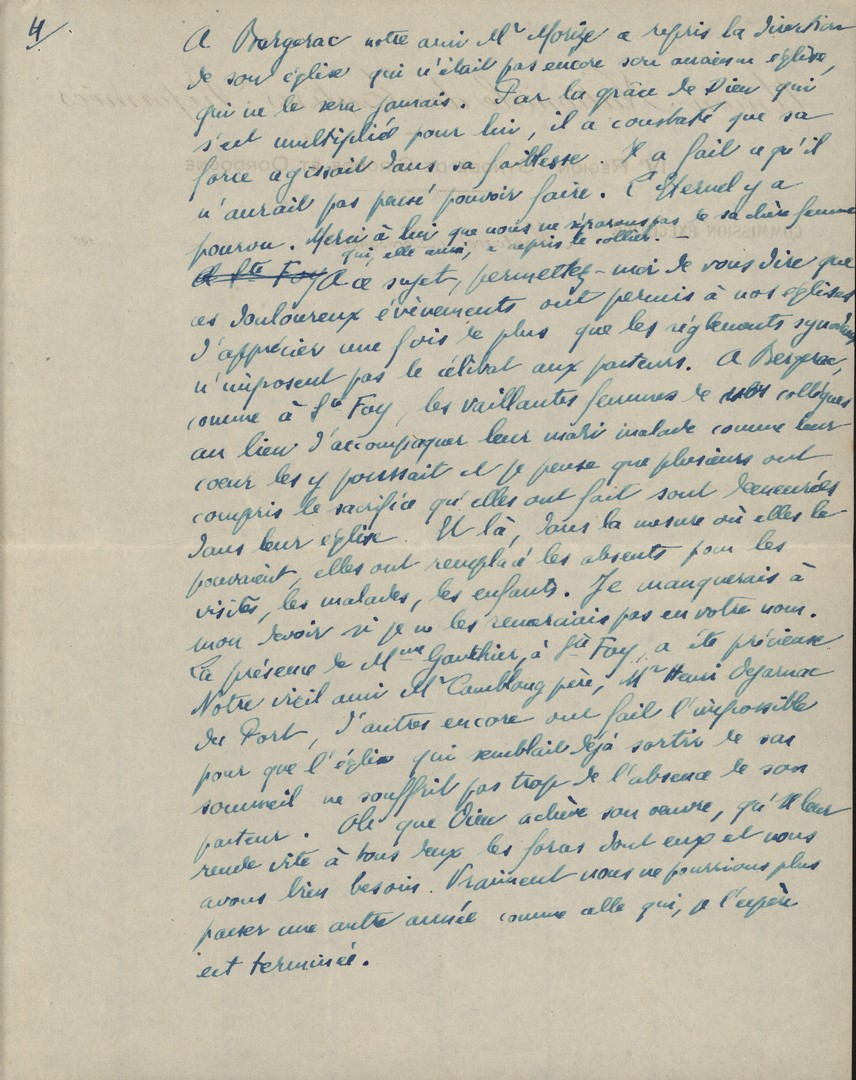 4/
A Bergerac notre ami Mr Morize a repris la direction
de son église qui n'était pas encore son ancienne église,
qui ne le sera jamais. Par la grâce de Dieu qui
s'est multiplié pour lui, il a constaté que sa
force agissait dans sa faiblesse. Il a fait ce qu'il
n'aurait pas pensé pouvoir faire. L'Eternel y a
pourvu. Merci à lui que nous ne séparons pas de sa chère femme
qui, elle aussi, a repris le collier. –
A Ste Foy A ce sujet, permettez-moi de vous dire que
ces douloureux évènements ont permis à nos églises
d'apprécier une fois de plus que les règlements synodaux
n'imposent pas le célibat aux pasteurs. A Bergerac,
comme à Ste Foy, les vaillantes femmes de nos collègues
au lieu d'accompagner leur mari malade comme leur
coeur les y poussait et je pense que plusieurs ont
compris le sacrifice qu'elles ont fait sont demeurées
dans leur église. Et là, dans la mesure où elles le
pouvaient, elles ont remplacé les absents pour les
visites, les malades, les enfants. Je manquerais à
mon devoir si je ne les remerciais pas en votre nom.
La présence de Mme Gauthier, à Ste Foy, a été précieuse
Notre vieil ami Mr Camblong père, Mr Henri
du Port, d'autres encore ont fait l'impossible
pour que l'église qui semblait déjà sortir de son
sommeil ne souffrit pas trop de l'absence de son
pasteur. Oh que Dieu achève son oeuvre, qu'Il leur
rende vite à tous deux les forces dont eux et nous
avons bien besoin. Vraiment nous ne pourrions plus
passer une autre année comme celle qui, je l'espère
est terminée.